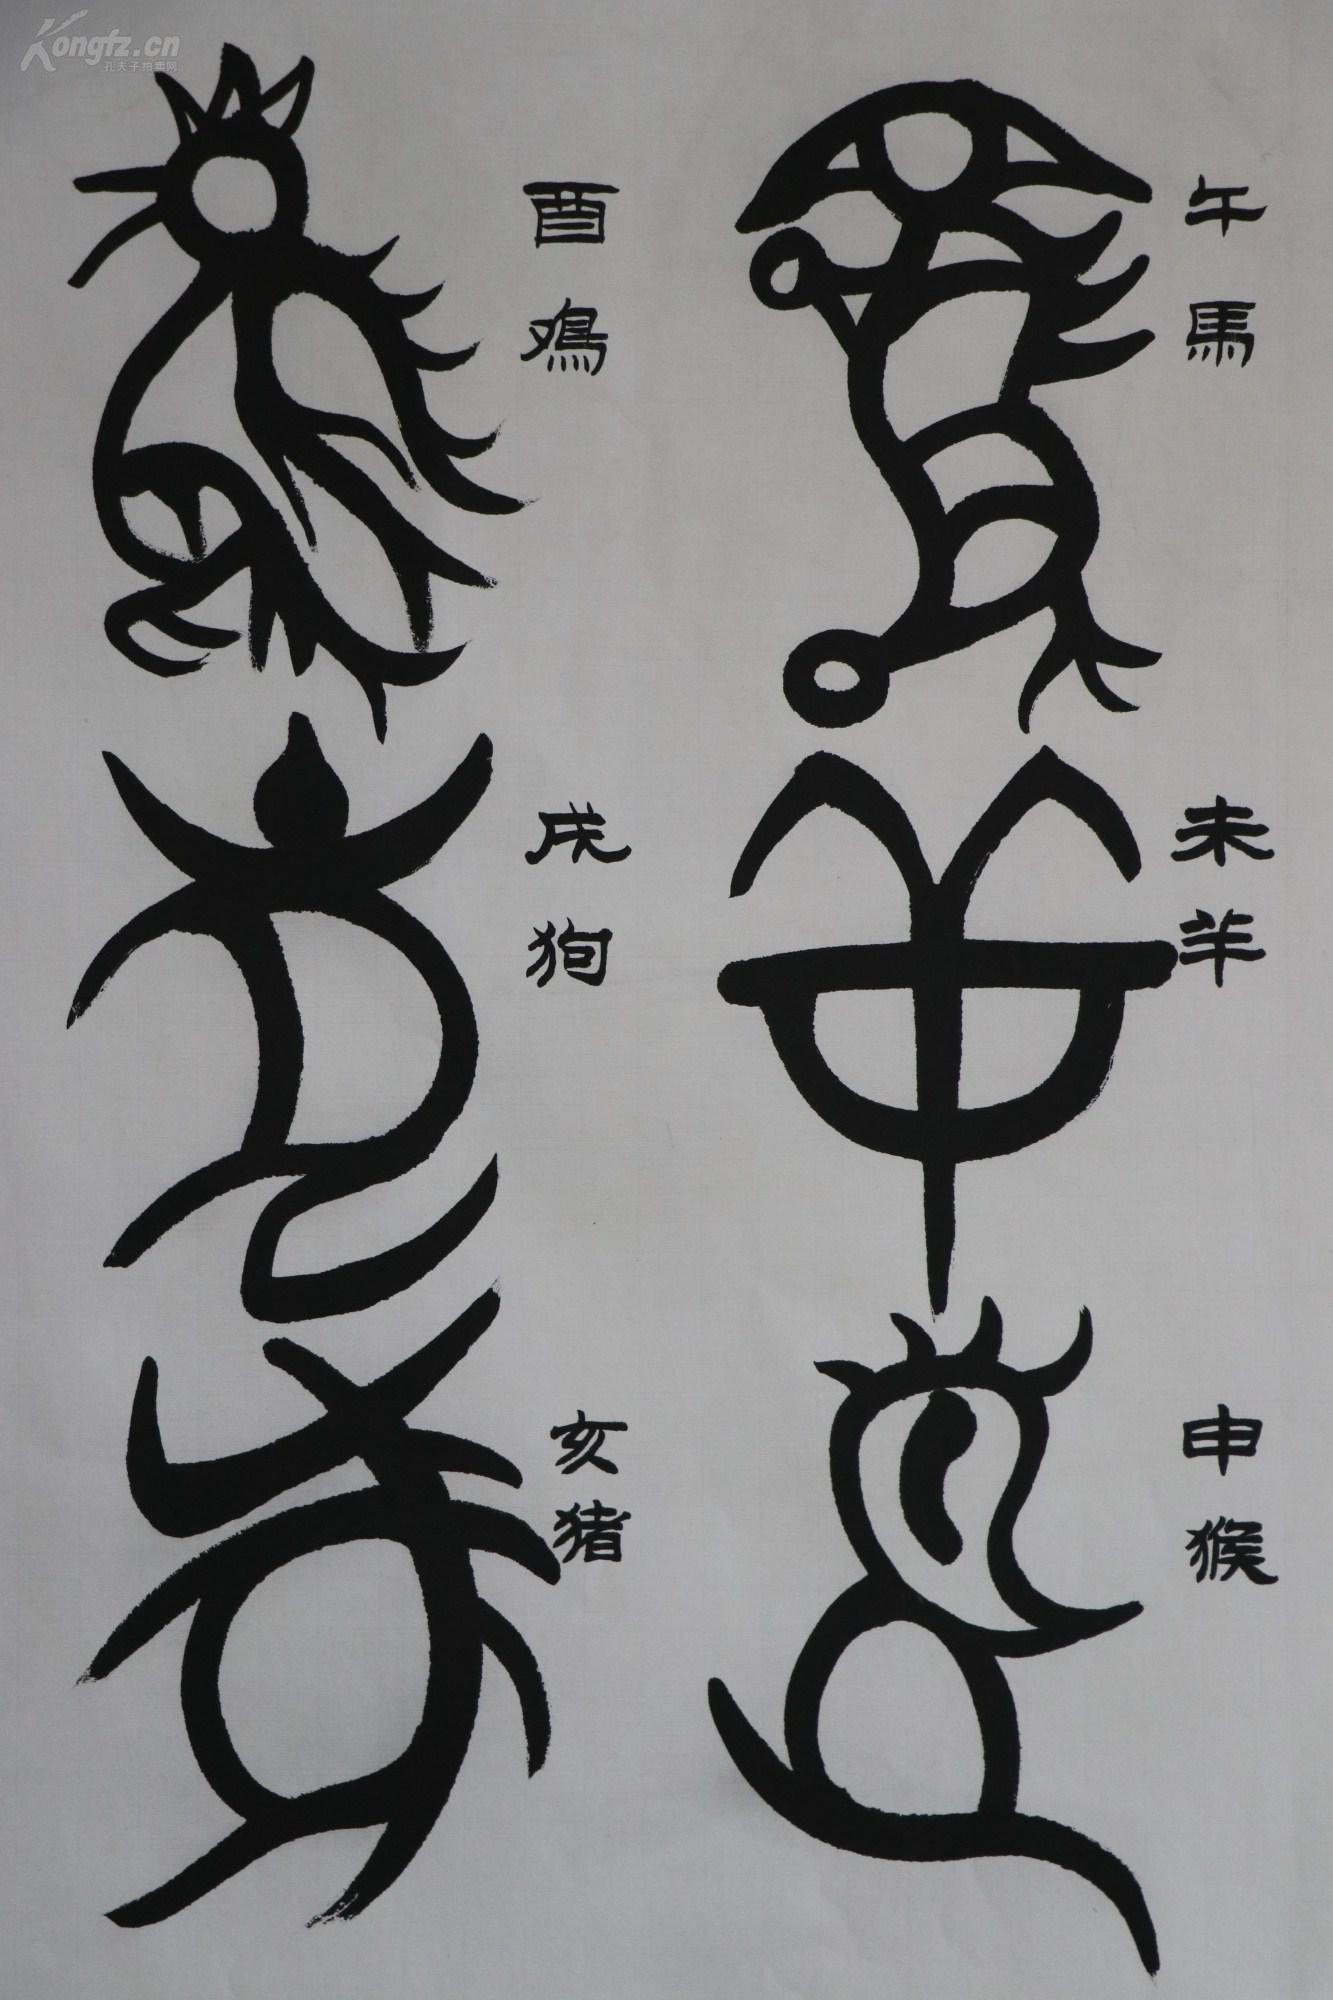 午馬
未羊
申猴
酉鸡
戌狗
亥猪
Kongfz.cn
孔夫子拍卖网